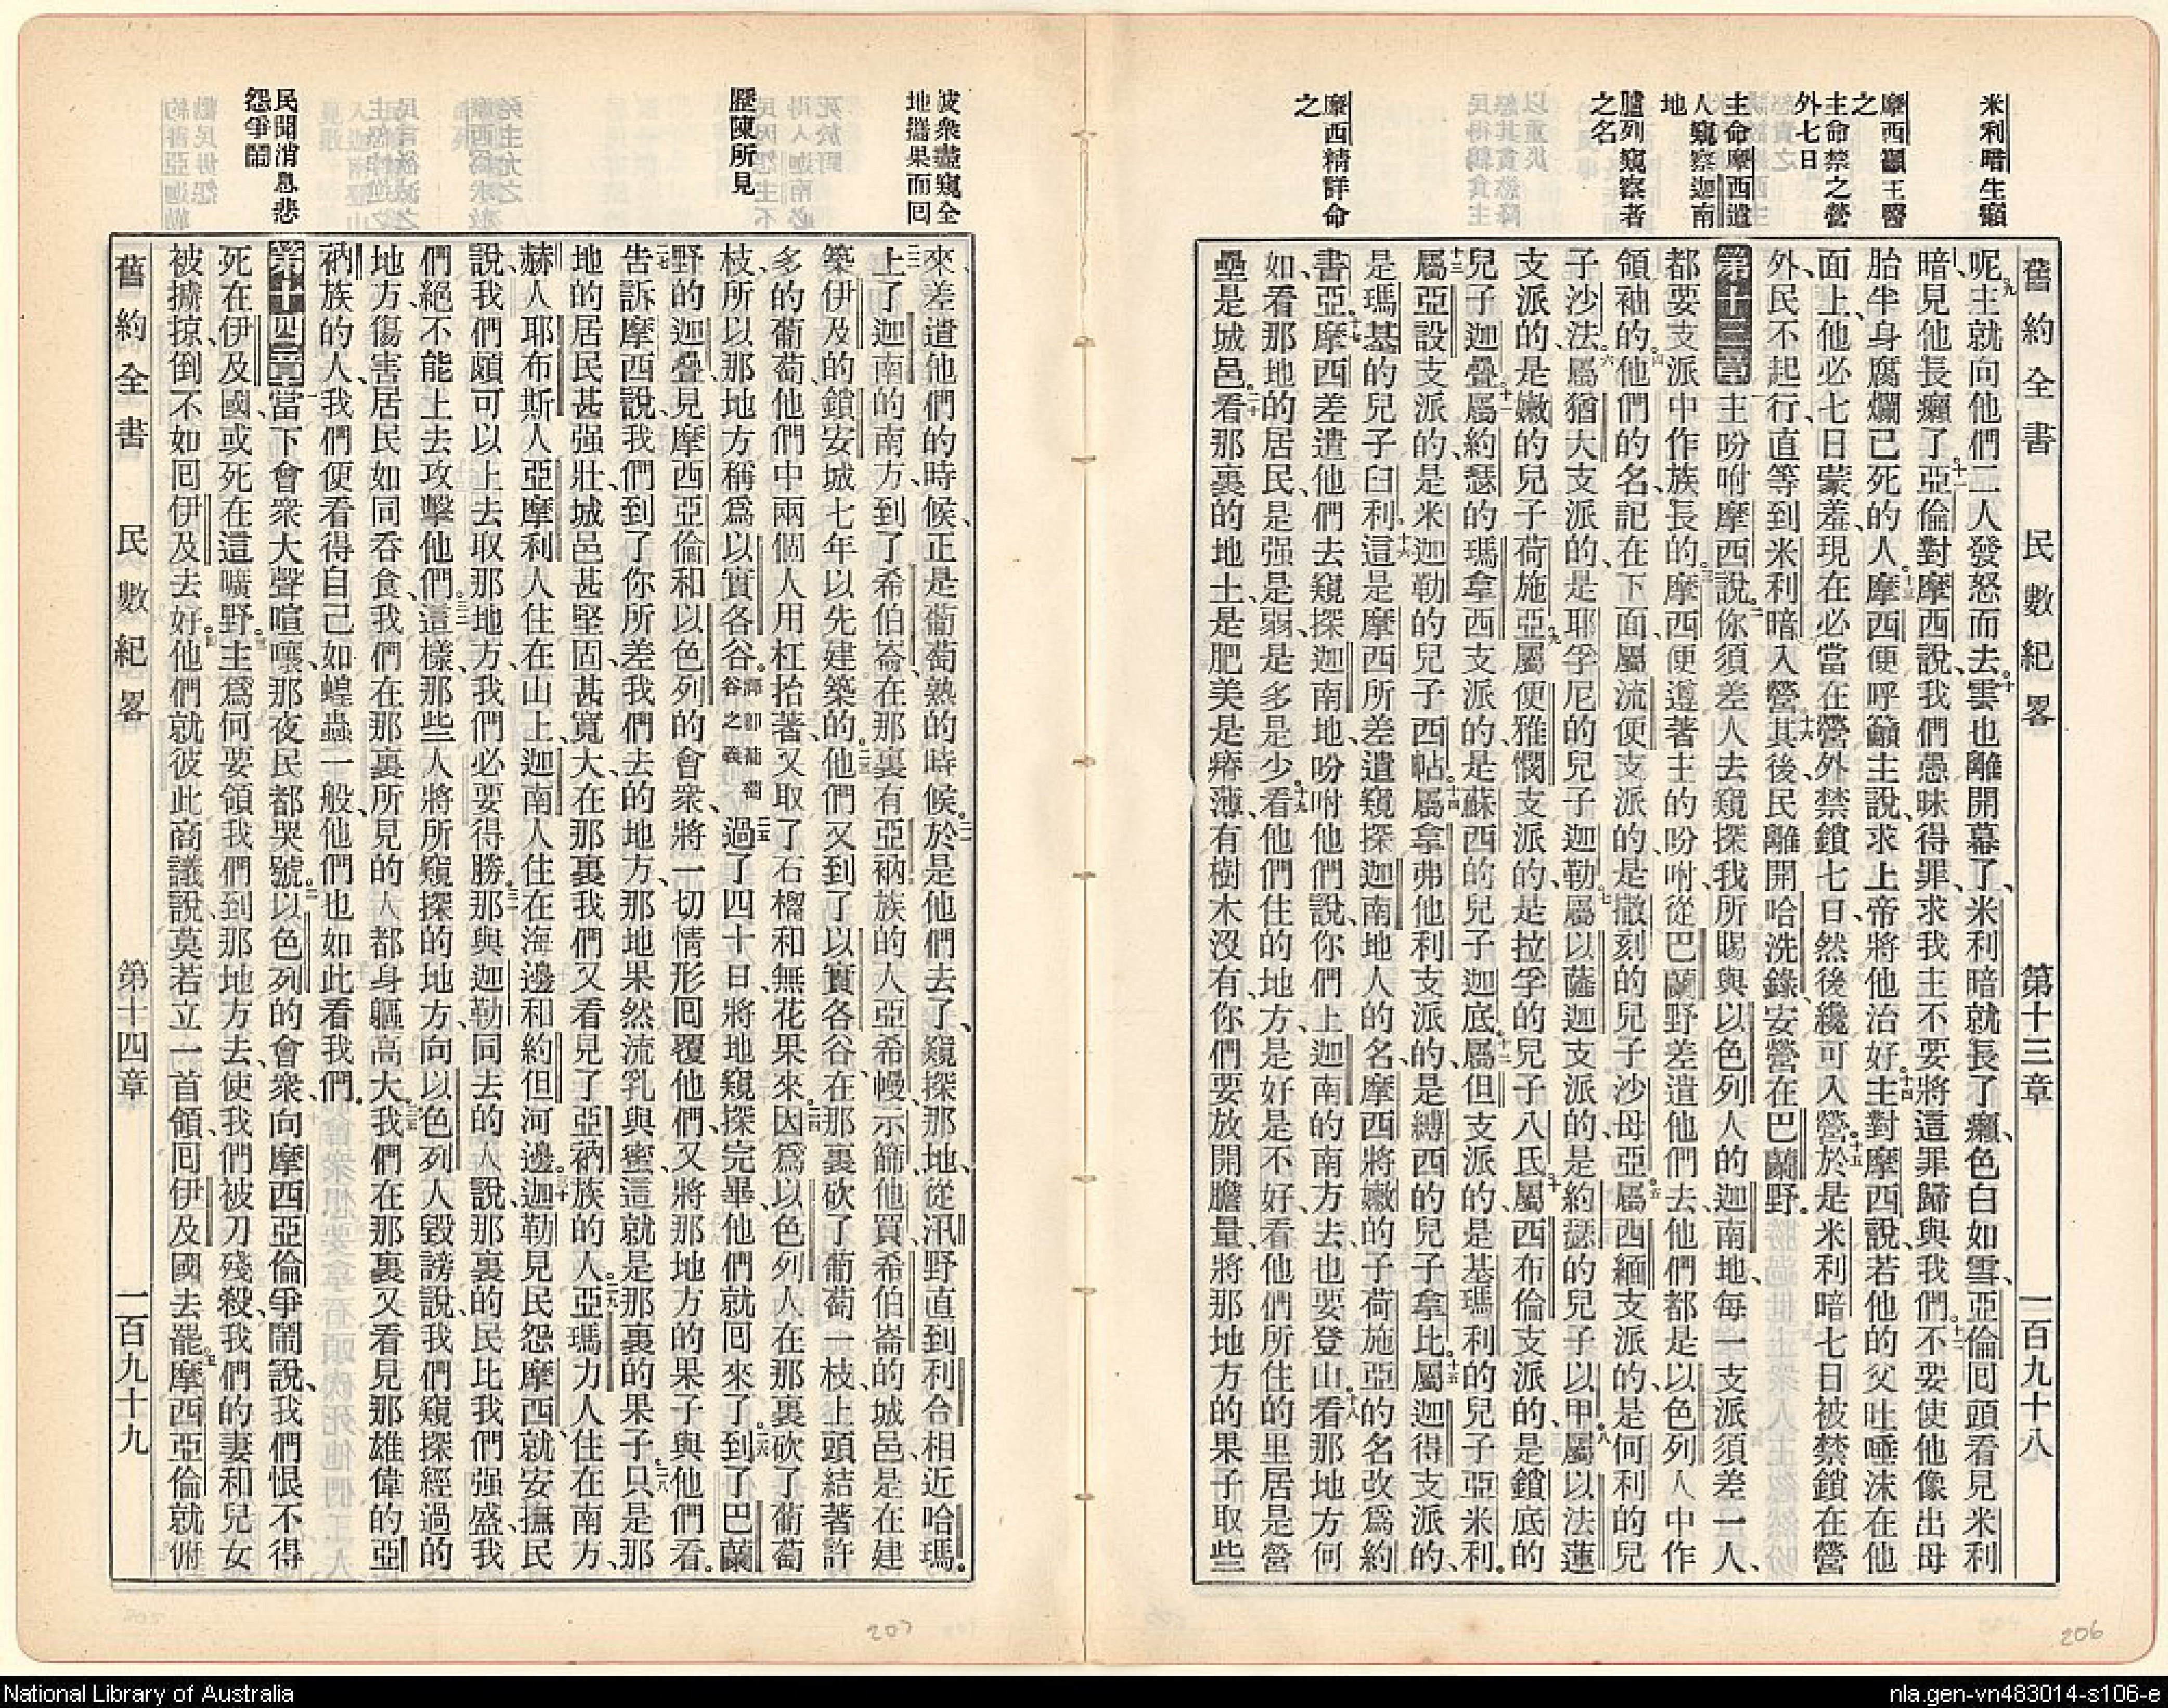 米利暗生癩
摩西籲主醫
之
主命禁之營
外七日
主命摩西遣
人窺察迦南
地
臚列窺察者
之名
摩西精詳命
之
舊約全書 民數紀畧 第十三章 一百九十八
呢、九主就向他們二人發怒而去。十雲也離開幕了、米利暗就長了癩、色白如雪、亞倫回頭看見米利
暗、見他長癩了。十一亞倫對摩西說、我們愚昧得罪、求我主不要將這罪歸與我們。十二不要使他像出母
胎半身腐爛已死的人。十三摩西便呼籲主說、求上帝將他治好。十四主對摩西說、若他的父吐唾沫在他
面上、他必七日蒙羞、現在必當在營外禁鎖七日、然後纔可入營。十五於是米利暗七日被禁鎖在營
外、民不起行、直等到米利暗入營。十六其後民離開哈洗錄、安營在巴蘭野。
第十三章 一主吩咐摩西說、二你須差人去窺探我所賜與以色列人的迦南地、每一支派須差一人、
都要支派中作族長的。三摩西便遵著主的吩咐、從巴蘭野差遣他們去、他們都是以色列人中作
領袖的。四他們的名、記在下面、屬流便支派的、是撒刻的兒子沙母亞。五屬西緬支派的、是何利的兒
子沙法。六屬猶大支派的、是耶孚尼的兒子迦勒。七屬以薩迦支派的、是約瑟的兒子以甲。八屬以法蓮
支派的、是嫩的兒子荷施亞。九屬便雅憫支派的、是拉孚的兒子八氏。十屬西布倫支派的、是鎖底的
兒子迦疊。十一屬約瑟的瑪拿西支派的、是蘇西的兒子迦底。十二屬但支派的、是基瑪利的兒子亞米利。
十三屬亞設支派的、是米迦勒的兒子西帖。十四屬拿弗他利支派的、是縛西的兒子拿比。十五屬迦得支派的、
是瑪基的兒子臼利。十六這是摩西所差遣窺探迦南地人的名、摩西將嫩的子荷施亞的名改為約
書亞。十七摩西差遣他們去窺探迦南地、吩咐他們說、你們上迦南的南方去、也要登山。十八看那地方何
如、看那地的居民、是强是弱、是多是少。十九看他們住的地方、是好是不好、看他們所住的里居是營
壘是城邑。二十看那裏的地土、是肥美是瘠薄、有樹木沒有、你們要放開膽量、將那地方的果子取些
彼衆盡窺全
地攜果而囘
歷陳所見
民聞消息悲
怨爭鬧
來、差遣他們的時候、正是葡萄熟的時候。二一於是他們去了、窺探那地、從汛野直到利合相近哈瑪。
二二上了迦南的南方、到了希伯崙、在那裏有亞衲族的人亞希幔、示篩、他買、希伯崙的城邑、是在建
築伊及的鎖安城七年以先建築的。二三他們又到了以實各谷、在那裏砍了葡萄一枝、上頭結著許
多的葡萄、他們中兩個人用杠抬著、又取了石榴和無花果來。二四因為以色列人在那裏砍了葡萄
枝、所以那地方稱為以實各谷。譯卽葡萄谷之義、二五過了四十日、將地窺探完畢、他們就囘來了。二六到了巴蘭
野的迦疊、見摩西亞倫和以色列的會衆、將一切情形囘覆他們、又將那地方的果子與他們看。
二七告訴摩西說、我們到了你所差我們去的地方、那地果然流乳與蜜、這就是那裏的果子。二八只是那
地的居民甚强壯、城邑甚堅固、甚寬大、在那裏我們又看見了亞衲族的人。二九亞瑪力人住在南方、
赫人耶布斯人亞摩利人住在山上、迦南人住在海邊、和約但河邊。三十迦勒見民怨摩西、就安撫民
說、我們頗可以上去取那地方、我們必要得勝。三一那與迦勒同去的人說、那裏的民比我們强盛、我
們絕不能上去攻擊他們。三二這樣、那些人將所窺探的地方、向以色列人毀謗說、我們窺探經過的
地方、傷害居民、如同吞食、我們在那裏所見的人、都身軀高大。三三我們在那裏又看見那雄偉的亞
衲族的人、我們便看得自己如蝗蟲一般、他們也如此看我們。
第十四章 一當下會衆大聲喧嚷、那夜民都哭號。二以色列的會衆、向摩西亞倫爭鬧說、我們恨不得
死在伊及國、或死在這曠野。三主為何要領我們到那地方去、使我們被刀殘殺、我們的妻和兒女
被擄掠、倒不如囘伊及去好。四他們就彼此商議說、莫若立一首領、囘伊及國去罷。五摩西亞倫就俯
舊約全書 民數紀畧 第十四章 一百九十九
207
206
National Library of Australia
nla.gen-vn483014-s106-e